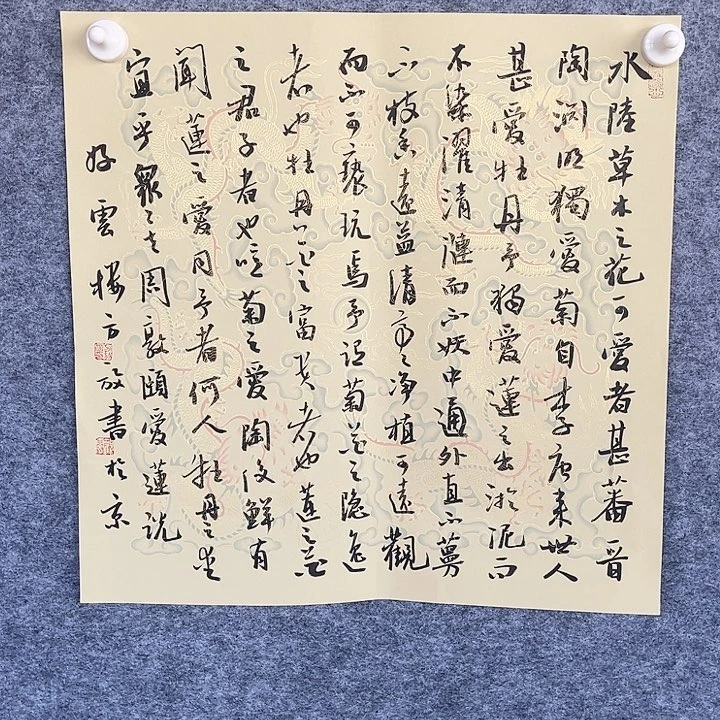 水陸草木之花可愛者甚蕃晋
陶渊明獨愛菊自李唐来世人
甚愛牡丹予独愛蓮之出淤泥而
不染濯清漣而不妖中通外直不蔓
不枝香遠益清亭〻净植可遠觀
而不可褻玩焉予谓菊花之隐逸
者也牡丹花之富贵者也蓮之花
之君子者也噫菊之愛陶後鮮有
聞蓮之愛同予者何人牡丹之愛
宜乎眾矣周敦頤愛蓮说
好雲楼方放書於京